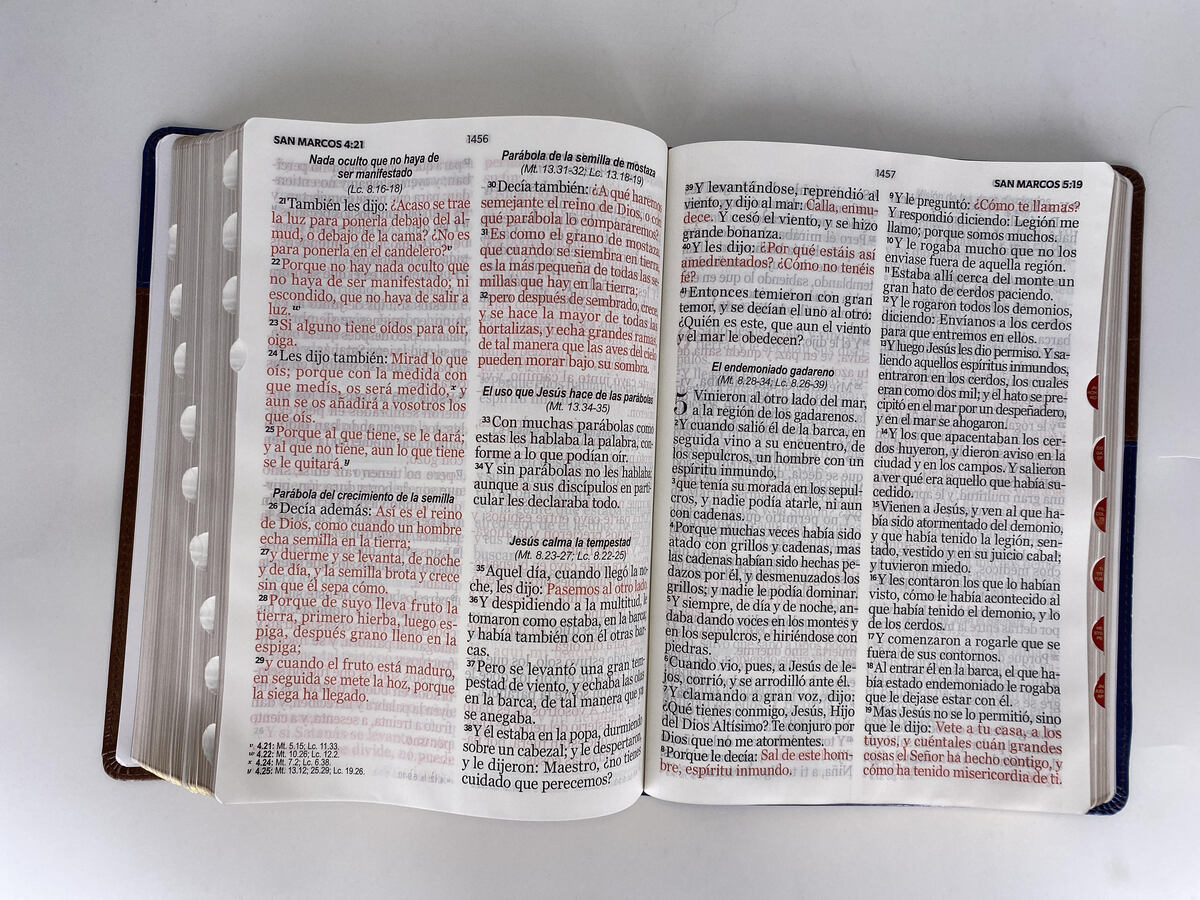 SAN MARCOS 4:21
1456
Nada oculto que no haya de
ser manifestado
(Lc. 8.16-18)
21 También les dijo: ¿Acaso se trae
la luz para ponerla debajo del al-
mud, o debajo de la cama? ¿No es
para ponerla en el candelero? u
22 Porque no hay nada oculto que
no haya de ser manifestado; ni
escondido, que no haya de salir a
luz.
23 Si alguno tiene oídos para oír,
oiga.
24 Les dijo también: Mirad lo que
oís; porque con la medida con
que medís, os será medido, x y
aun se os añadirá a vosotros los
que oís.
25 Porque al que tiene, se le dará;
y al que no tiene, aun lo que tiene
se le quitará. y
Parábola del crecimiento de la semilla
26 Decía además: Así es el reino
de Dios, como cuando un hombre
echa semilla en la tierra;
27 y duerme y se levanta, de noche
y de día, y la semilla brota y crece
sin que él sepa cómo.
28 Porque de suyo lleva fruto la
tierra, primero hierba, luego es-
piga, después grano lleno en la
espiga;
29 y cuando el fruto está maduro,
en seguida se mete la hoz, porque
la siega ha llegado.
4.21: Mt. 5.15; Lc. 11.33.
4.22: Mt. 10.26; Lc. 12.2.
x 4.24: Mt. 7.2; Lc. 6.38.
y 4.25: Mt. 13.12; 25.29; Lc. 19.26.
Parábola de la semilla de mostaza
(Mt. 13.31-32; Lc. 13.18-19)
30 Decía también: ¿A qué haremos
semejante el reino de Dios, o con
qué parábola lo compararemos?
31 Es como el grano de mostaza,
que cuando se siembra en tierra,
es la más pequeña de todas las se-
millas que hay en la tierra;
32 pero después de sembrado, crece,
y se hace la mayor de todas las
hortalizas, y echa grandes ramas,
de tal manera que las aves del cielo
pueden morar bajo su sombra.
El uso que Jesús hace de las parábolas
(Mt. 13.34-35)
33 Con muchas parábolas como
estas les hablaba la palabra, con-
forme a lo que podían oír.
34 Y sin parábolas no les hablaba;
aunque a sus discípulos en parti-
cular les declaraba todo.
Jesús calma la tempestad
(Mt. 8.23-27; Lc. 8.22-25)
35 Aquel día, cuando llegó la no-
che, les dijo: Pasemos al otro lado.
36 Y despidiendo a la multitud, le
tomaron como estaba, en la barca;
y había también con él otras bar-
cas.
37 Pero se levantó una gran tem-
pestad de viento, y echaba las olas
en la barca, de tal manera que ya
se anegaba.
38 Y él estaba en la popa, durmiendo
sobre un cabezal; y le despertaron,
y le dijeron: Maestro, ¿no tienes
cuidado que perecemos?
1457
SAN MARCOS 5:19
39 Y levantándose, reprendió al
viento, y dijo al mar: Calla, enmu-
dece. Y cesó el viento, y se hizo
grande bonanza.
40 Y les dijo: ¿Por qué estáis así
amedrentados? ¿Cómo no tenéis
fe?
41 Entonces temieron con gran
temor, y se decían el uno al otro:
¿Quién es este, que aun el viento
y el mar le obedecen?
El endemoniado gadareno
(Mt. 8.28-34; Lc. 8.26-39)
5 Vinieron al otro lado del mar,
a la región de los gadarenos.
2 Y cuando salió él de la barca, en
seguida vino a su encuentro, de
los sepulcros, un hombre con un
espíritu inmundo,
3 que tenía su morada en los sepul-
cros, y nadie podía atarle, ni aun
con cadenas.
4 Porque muchas veces había sido
atado con grillos y cadenas, mas
las cadenas habían sido hechas pe-
dazos por él, y desmenuzados los
grillos; y nadie le podía dominar.
5 Y siempre, de día y de noche, an-
daba dando voces en los montes y
en los sepulcros, e hiriéndose con
piedras.
6 Cuando vio, pues, a Jesús de le-
jos, corrió, y se arrodilló ante él.
7 Y clamando a gran voz, dijo:
¿Qué tienes conmigo, Jesús, Hijo
del Dios Altísimo? Te conjuro por
Dios que no me atormentes.
8 Porque le decía: Sal de este hom-
bre, espíritu inmundo.
9 Y le preguntó: ¿Cómo te llamas?
Y respondió diciendo: Legión me
llamo; porque somos muchos.
10 Y le rogaba mucho que no los
enviase fuera de aquella región.
11 Estaba allí cerca del monte un
gran hato de cerdos paciendo.
12 Y le rogaron todos los demonios,
diciendo: Envíanos a los cerdos
para que entremos en ellos.
13 Y luego Jesús les dio permiso. Y sa-
liendo aquellos espíritus inmundos,
entraron en los cerdos, los cuales
eran como dos mil; y el hato se pre-
cipitó en el mar por un despeñadero,
y en el mar se ahogaron.
14 Y los que apacentaban los cer-
dos huyeron, y dieron aviso en la
ciudad y en los campos. Y salieron
a ver qué era aquello que había su-
cedido.
15 Vienen a Jesús, y ven al que ha-
bía sido atormentado del demonio,
y que había tenido la legión, sen-
tado, vestido y en su juicio cabal;
y tuvieron miedo.
16 Y les contaron los que lo habían
visto, cómo le había acontecido al
que había tenido el demonio, y lo
de los cerdos.
17 Y comenzaron a rogarle que se
fuera de sus contornos.
18 Al entrar él en la barca, el que ha-
bía estado endemoniado le rogaba
que le dejase estar con él.
19 Mas Jesús no se lo permitió, sino
que le dijo: Vete a tu casa, a los
tuyos, y cuéntales cuán grandes
cosas el Señor ha hecho contigo, y
cómo ha tenido misericordia de ti.